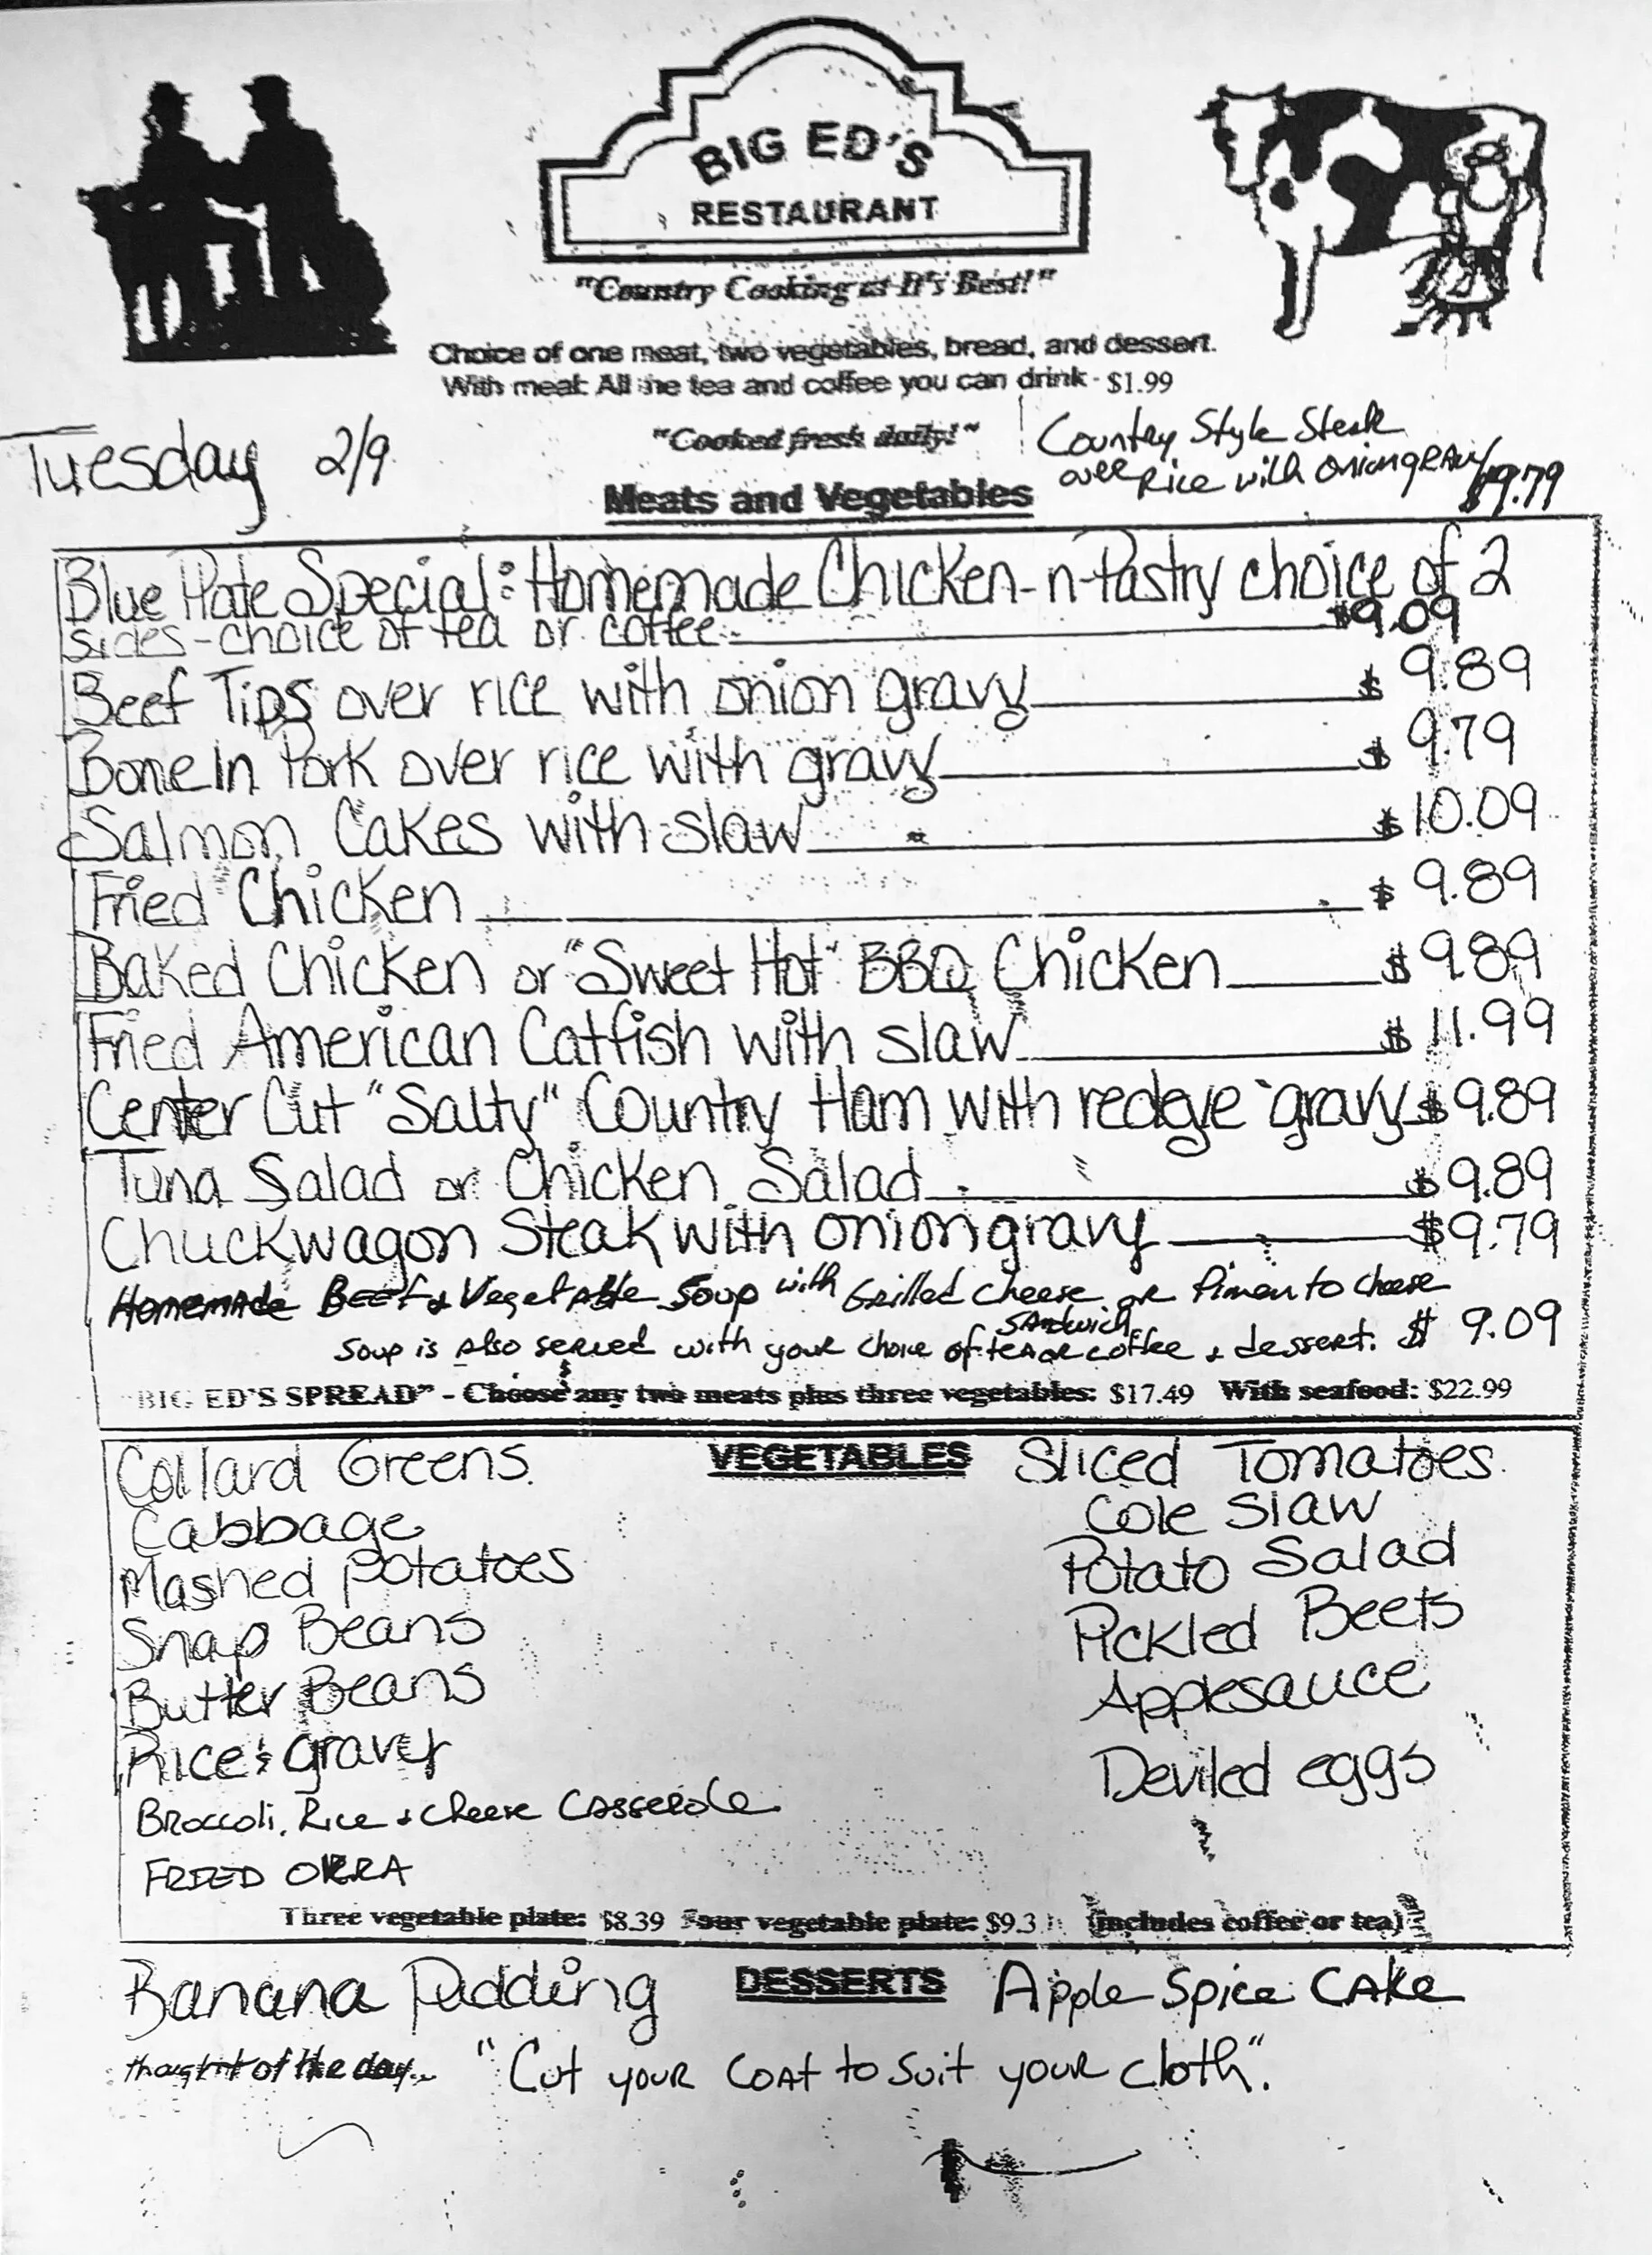 BIG ED'S
RESTAURANT
"Country Cooking at It's Best!"
Choice of one meat, two vegetables, bread, and dessert.
With meal: All the tea and coffee you can drink - $1.99
Tuesday 2/9
"Cooked fresh daily!"
Country Style Steak
over Rice with onion gravy
$9.79
Meats and Vegetables
Blue Plate Special: Homemade Chicken-n-Pastry choice of 2
sides - choice of tea or coffee $9.09
Beef Tips over rice with onion gravy $9.89
Bone In Pork over rice with gravy $9.79
Salmon Cakes with slaw $10.09
Fried Chicken $9.89
Baked Chicken or "Sweet Hot" BBQ Chicken $9.89
Fried American Catfish with slaw $11.99
Center Cut "Salty" Country Ham with redeye gravy $9.89
Tuna Salad or Chicken Salad $9.89
Chuckwagon Steak with onion gravy $9.79
Homemade Beef & Vegetable Soup with Grilled Cheese or Pimento Cheese
Sandwich
Soup is also served with your choice of tea or coffee & dessert. $9.09
"BIG ED'S SPREAD" - Choose any two meats plus three vegetables: $17.49 With seafood: $22.99
VEGETABLES
Collard Greens
Cabbage
Mashed Potatoes
Snap Beans
Butter Beans
Rice & gravy
Broccoli, Rice & Cheese Casserole
FRIED OKRA
Sliced Tomatoes
Cole Slaw
Potato Salad
Pickled Beets
Applesauce
Deviled eggs
Three vegetable plate: $8.39 Four vegetable plate: (includes coffee or tea)
DESSERTS
Banana Pudding
Apple Spice Cake
thought of the day... "Cut your coat to suit your cloth".